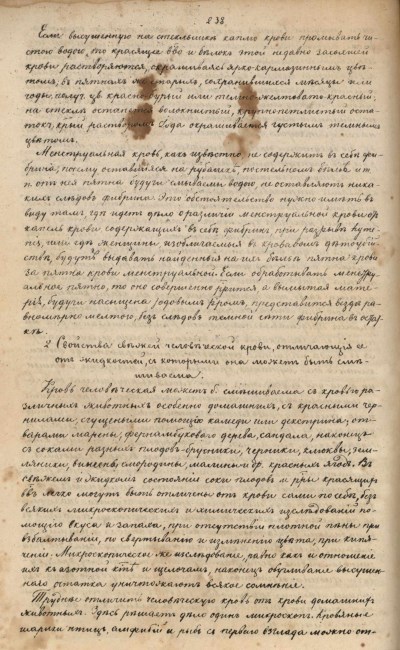 238.
Если высушенную на стеклышке каплю крови промывать чи-
стою водою, то красящее в-во и бѣлокъ этой недавно засохшей
крови растворяются, окрашиваясь ярко-карминнымъ цвѣ-
томъ, въ пятнахъ же старыхъ, сохранившихся мѣсяцы или
годы, получ. цв. краснобурый или темно-желтовато красный;
на стеклѣ остается волокнистый, крупнопетлистый оста-
токъ, растворомъ иода окрашивается густымъ темнымъ
цвѣтомъ.
Менструальная кровь, какъ извѣстно, не содержитъ въ себѣ фи-
брина; почему оставшіяся на рубашкѣ, постельномъ бѣльѣ и т.
п. отъ нея пятна будучи смываемы водою, не оставляютъ ника-
кихъ слѣдовъ фибрина. Это обстоятельство нужно имѣть въ
виду тамъ, гдѣ идетъ дѣло о различіи менструальной крови отъ
капель крови содержащихъ въ себѣ фибринъ при разрывѣ
или гдѣ женщины, изобличаемыя въ кровавомъ дѣтоубій-
ствѣ, будутъ выдавать найденныя на ихъ бѣльѣ пятна крови
за пятна крови менструальной. Если обработать менстру-
альное пятно, то оно совершенно и вымытая мате-
рія, будучи насыщена іодовымъ р-ромъ, представится вездѣ ра-
вномѣрно желтою, безъ слѣдовъ темной сѣти фибрина въ остат-
кѣ.
2. Свойства свѣжей человѣческой крови, отличающія ее
отъ жидкостей, съ которыми она можетъ быть смѣ-
шиваема.
Кровь человѣческая можетъ б. смѣшиваема съ кровью ра-
зличныхъ животныхъ особенно домашнихъ, съ красными чер-
нилами, сгущенными помощію камеди или декстрина; от-
варами марены, фернамбуковаго дерева, сандала, наконецъ
съ соками разныхъ плодовъ: брусники, черники, клюквы, зем-
ляники, вишень, смородины, малины и др. красныхъ ягодъ. Въ
свѣжемъ и жидкомъ состояніи соки плодовъ и красящихъ
легко могутъ быть отличены отъ крови сами по себѣ, безъ
всякихъ микроскопическихъ и химическихъ изслѣдованій по-
мощію вкуса и запаха, при отсутствіи плотной пѣны при
взбалтываніи, по свертыванію и измѣненію цвѣта, при кипя-
ченіи. Микроскопическое же изслѣдованіе, равно какъ и отношеніе
ихъ къ азотной к-тѣ и щелочамъ, наконецъ обугливаніе высушен-
наго остатка уничтожаютъ всякое сомнѣніе.
Труднѣе отличить человѣческую кровь отъ крови домашнихъ
животныхъ. Здѣсь рѣшаетъ дѣло одинъ микроскопъ. Кровяные
шарики птицъ, амфибій и рыбъ съ перваго взгляда можно от-